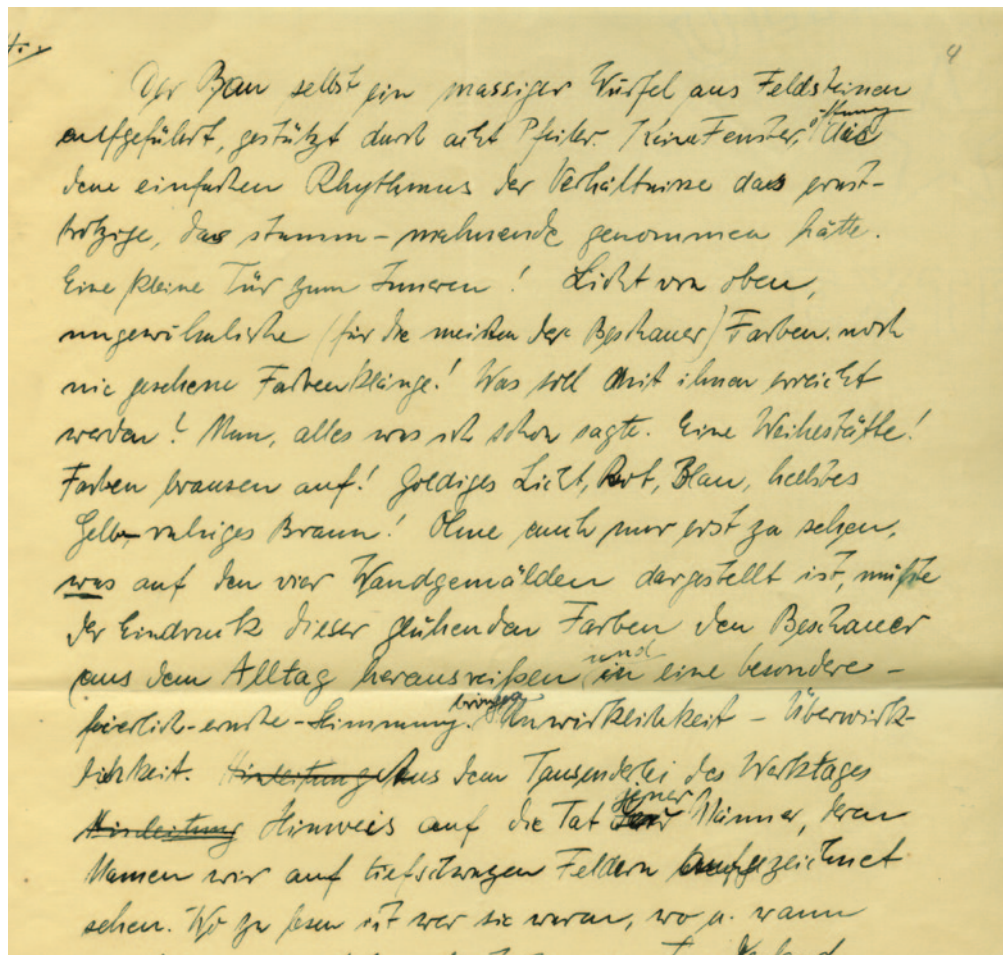 4
Der Bau selbst ein massiger Würfel aus Feldsteinen
aufgeführt, gestützt durch acht Pfeiler. Keine Fenster, öffnung die
dem einfachen Rhythmus der Verhältnisse das ernst-
trotzige, das stumm-mahnende genommen hätte.
Eine kleine Tür zum Inneren! Licht von oben,
ungewöhnliche (für die meisten der Beschauer) Farben. noch
nie gesehene Farbenklänge! Was soll mit ihnen erreicht
werden? Nun, alles was ich schon sagte. Eine Weihestätte!
Farben brausen auf! Goldiges Licht, Rot, Blau, hellstes
Gelb, ruhiges Braun! Ohne auch nur erst zu sehen,
was auf den vier Wandgemälden dargestellt ist, müßte
der Eindruck dieser glühenden Farben den Beschauer
aus dem Alltag herausreißen und in eine besondere -
feierlich-ernste-Stimmung bringen. Unwirklichkeit - Überwirk-
lichkeit. Hinleitung Aus dem Tausenderlei des Werktages
Hinleitung Hinweis auf die Tat jener Männer, deren
Namen wir auf tiefschwarzen Feldern aufgezeichnet
sehen. Wo zu lesen ist wer sie waren, wo u. wann